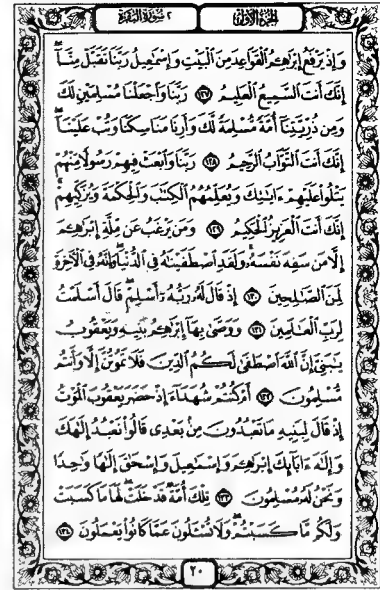 الجزء الأول ٢ سورة البقرة
وَإِذْ يَرْفَعُ إِبْرَٰهِـۧمُ ٱلْقَوَاعِدَ مِنَ ٱلْبَيْتِ وَإِسْمَٰعِيلُ رَبَّنَا تَقَبَّلْ مِنَّآ ۖ
إِنَّكَ أَنتَ ٱلسَّمِيعُ ٱلْعَلِيمُ ١٢٧ رَبَّنَا وَٱجْعَلْنَا مُسْلِمَيْنِ لَكَ
وَمِن ذُرِّيَّتِنَآ أُمَّةً مُّسْلِمَةً لَّكَ وَأَرِنَا مَنَاسِكَنَا وَتُبْ عَلَيْنَآ ۖ
إِنَّكَ أَنتَ ٱلتَّوَّابُ ٱلرَّحِيمُ ١٢٨ رَبَّنَا وَٱبْعَثْ فِيهِمْ رَسُولًا مِّنْهُمْ
يَتْلُوا۟ عَلَيْهِمْ ءَايَٰتِكَ وَيُعَلِّمُهُمُ ٱلْكِتَٰبَ وَٱلْحِكْمَةَ وَيُزَكِّيهِمْ ۚ
إِنَّكَ أَنتَ ٱلْعَزِيزُ ٱلْحَكِيمُ ١٢٩ وَمَن يَرْغَبُ عَن مِّلَّةِ إِبْرَٰهِـۧمَ
إِلَّا مَن سَفِهَ نَفْسَهُۥ ۚ وَلَقَدِ ٱصْطَفَيْنَٰهُ فِى ٱلدُّنْيَا ۖ وَإِنَّهُۥ فِى ٱلْءَاخِرَةِ
لَمِنَ ٱلصَّٰلِحِينَ ١٣٠ إِذْ قَالَ لَهُۥ رَبُّهُۥٓ أَسْلِمْ ۖ قَالَ أَسْلَمْتُ
لِرَبِّ ٱلْعَٰلَمِينَ ١٣١ وَوَصَّىٰ بِهَآ إِبْرَٰهِـۧمُ بَنِيهِ وَيَعْقُوبُ
يَٰبَنِىَّ إِنَّ ٱللَّهَ ٱصْطَفَىٰ لَكُمُ ٱلدِّينَ فَلَا تَمُوتُنَّ إِلَّا وَأَنتُم
مُّسْلِمُونَ ١٣٢ أَمْ كُنتُمْ شُهَدَآءَ إِذْ حَضَرَ يَعْقُوبَ ٱلْمَوْتُ
إِذْ قَالَ لِبَنِيهِ مَا تَعْبُدُونَ مِنۢ بَعْدِى قَالُوا۟ نَعْبُدُ إِلَٰهَكَ
وَإِلَٰهَ ءَابَآئِكَ إِبْرَٰهِـۧمَ وَإِسْمَٰعِيلَ وَإِسْحَٰقَ إِلَٰهًا وَٰحِدًا
وَنَحْنُ لَهُۥ مُسْلِمُونَ ١٣٣ تِلْكَ أُمَّةٌ قَدْ خَلَتْ ۖ لَهَا مَا كَسَبَتْ
وَلَكُم مَّا كَسَبْتُمْ ۖ وَلَا تُسْـَٔلُونَ عَمَّا كَانُوا۟ يَعْمَلُونَ ١٣٤
٢٠